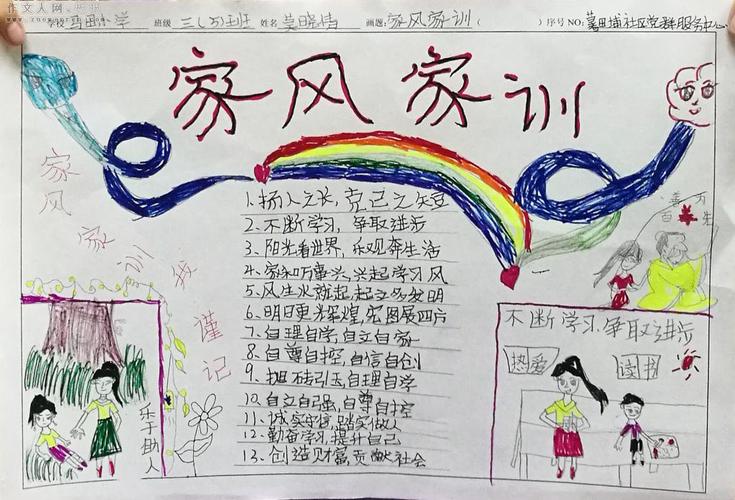 作文人网
学校 马田小学 班级 三(5)班 姓名 莫晓倩 画题:家风家训( )序号NO:薯田埔社区党群服务中心
家风家训
家风家训我谨记
1.扬人之长,克己之短
2.不断学习,争取进步
3.阳光看世界,乐观奔生活
4.家和万事兴,兴起学习风
5.风生水就起,起立多发明
6.明日更光辉煌,宏图展四方
7.自理自学,自立自家
8.自尊自控,自信自创
9.抛砖引玉,自理自学
10.自立自强,自尊自控
11.诚实守信,踏实做人
12.勤奋学习,提升自己
13.创造财富,贡献社会
乐于助人
百善
万生
不断学习,争取进步
热爱
读书